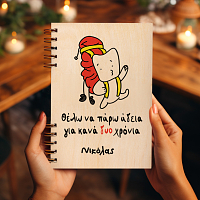 Θέλω να πάρω άδεια
για κανά δυο χρόνια
Νικόλας